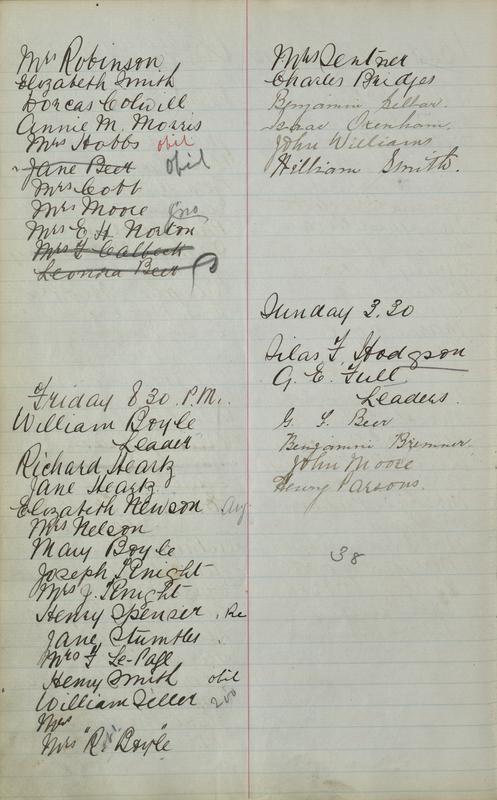 Mrs Robinson
Elizabeth Smith
Dorcas Colwill
Annie M. Morris
Mrs Hobbs obit
Jane Beer obit
Mrs Cobb
Mrs Moore
Mrs E H Norton
Mrs F Calbeck
Leonora Beer
Friday 8 30 P.M.
William Boyle
Leader
Richard Heartz
Jane Heartz
Elizabeth Newson
Mrs Nelson
Mary Boyle
Joseph Knight
Mrs J. Knight
Henry Spenser . Re
Jane Stumbles
Mrs F Le-Page
Henry Smith obit
William Seller
Mrs
Mrs "R. Boyle"
Mrs Sentner
Charles Bridges
Benjamin
Isaac Oxenham.
John Williams
William Smith.
Sunday 3.30
Silas F. Hodgson
G. E. Full
Leaders.
G. F. Beer
Benjamin Bremner.
John Moore
Henry Parsons.
38